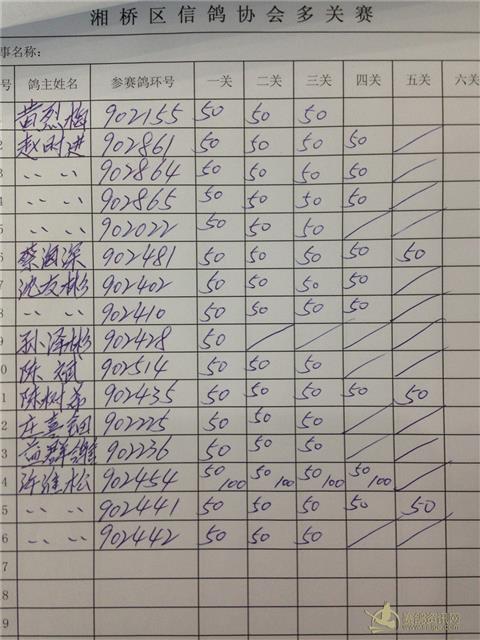 湘桥区信鸽协会多关赛
事名称:
号 鸽主姓名 参赛鸽环号 一关 二关 三关 四关 五关 六关
黄烈梅 902155 50 50 50
2 赵时进 902861 50 50 50 50 /
3 〃 〃 902864 50 50 50 50 /
4 〃 〃 902865 50 50 50 50 /
5 〃 〃 902022 50 50 50 / /
6 蔡汹深 902481 50 50 50 50 50
7 沈友彬 902402 50 50 50 50 /
8 〃 〃 902410 50 50 50 50 /
9 孙泽彬 902428 50 / / / /
0 陈斌 902514 50 50 50 / /
1 陈树 902435 50 50 50 50 50
2 庄喜 902225 50 50 50 / /
3 益群 902236 50 50 50 / /
4 许维松 902454 50/100 50/100 50/100 50/100 /
5 〃 〃 902441 50 50 50 50 50
6 〃 〃 902442 50 50 50 / /
7
8
9